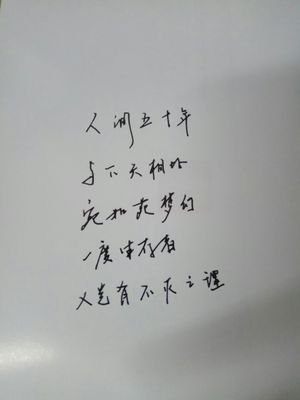 人间五十年
与下天相比
宛如在梦幻
一度生存者
又岂有不灭之理